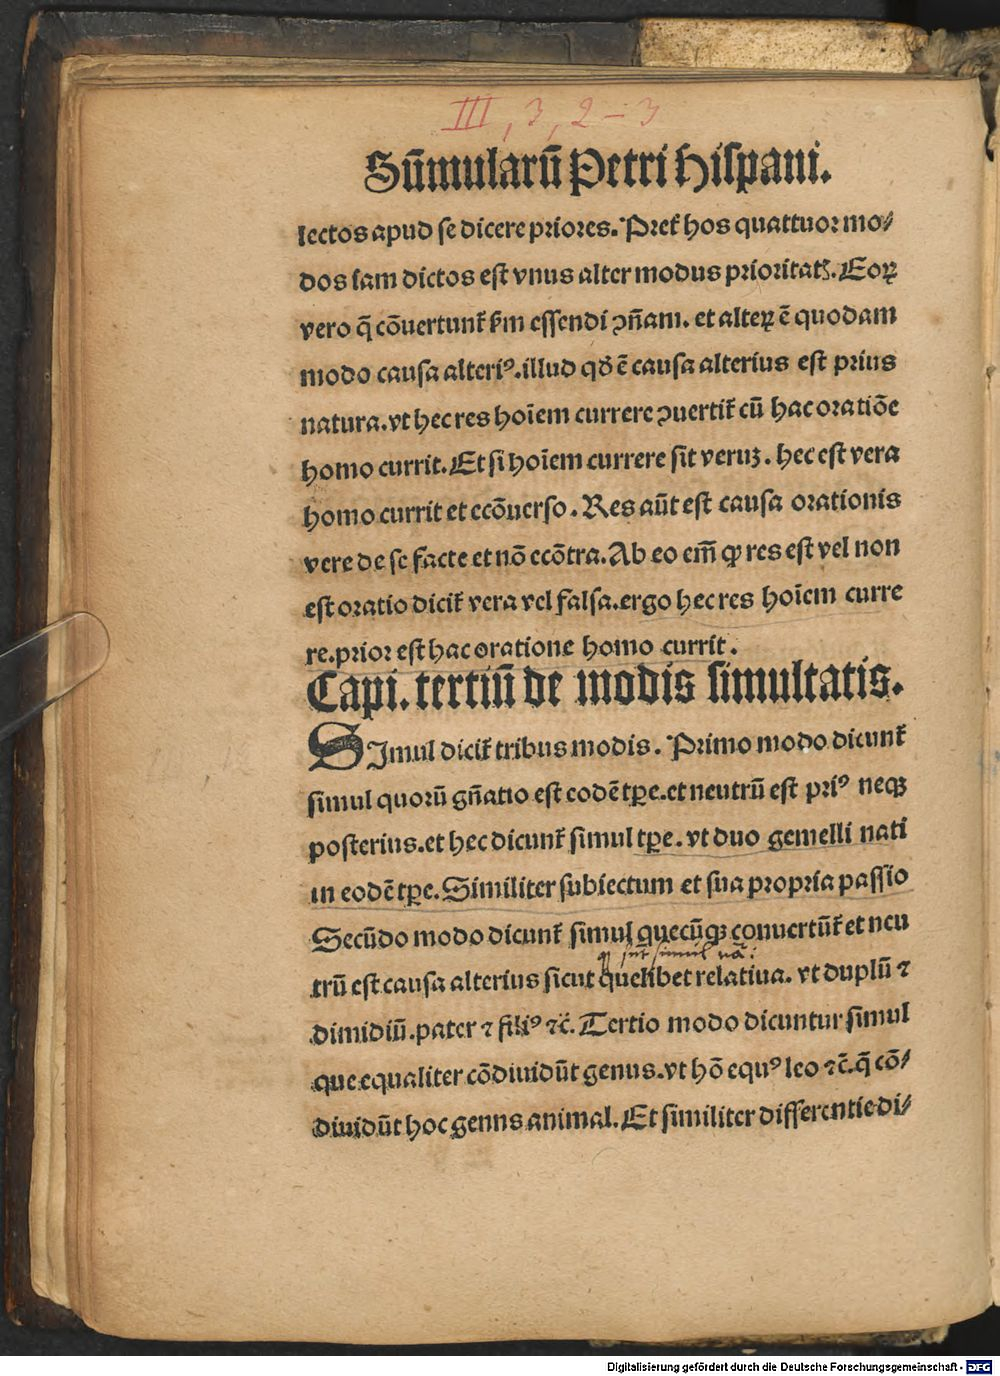 III, 3, 2-3
Sūmularū Petri hispani.
lectos apud se dicere priores. Pret̄ hos quattuor mo⸗
dos iam dictos est vnus alter modus prioritatꝭ. Eoꝝ
vero q̄ cōuertunt̄ ẜm essendi ꝯñam. et alteꝝ ē quodam
modo causa alteriꝰ. illud qđ ē causa alterius est prius
natura. vt hec res hoīem currere ꝯuertit̄ cū hac oratiōe
homo currit. Et si hoīem currere sit veruꝫ. hec est vera
homo currit et ecōuerso. Res aūt est causa orationis
vere de se facte et nō ecōtra. Ab eo em̄ ꝙ res est vel non
est oratio dicit̄ vera vel falsa. ergo hec res hoīem curre
re. prior est hac oratione homo currit.
Capi. tertiū de modis simultatis.
SImul dicit̄ tribus modis. Primo modo dicunt̄
simul quorū gñatio est eodē tꝑe. et neutrū est priꝰ neqꝫ
posterius. et hec dicunt̄ simul tꝑe. vt duo gemelli nati
in eodē tꝑe. Similiter subiectum et sua propria passio
Secūdo modo dicunt̄ simul quecūqꝫ conuertūt̄ et neu
ꝙ sūt simul nā:
trū est causa alterius sicut quelibet relatiua. vt duplū ⁊
dimidiū. pater ⁊ filiꝰ ⁊c̄. Tertio modo dicuntur simul
que equaliter cōdiuidūt genus. vt hō equꝰ leo ⁊c̄. q̄ cō⸗
diuidūt hoc genns animal. Et similiter differentie di⸗
Digitalisierung gefördert durch die Deutsche Forschungsgemeinschaft - DFG